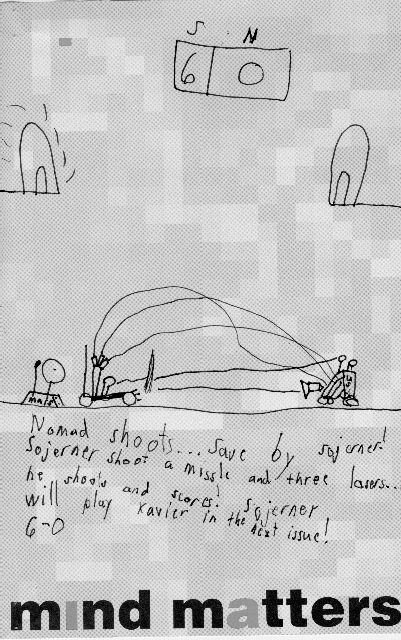 S N
6 0
mats
Nomad shoots... save by sojerner!
Sojerner shoot a missle and three lasers...
he shoots and scores! sojerner
will play xavier in the next issue!
6-0
mind matters